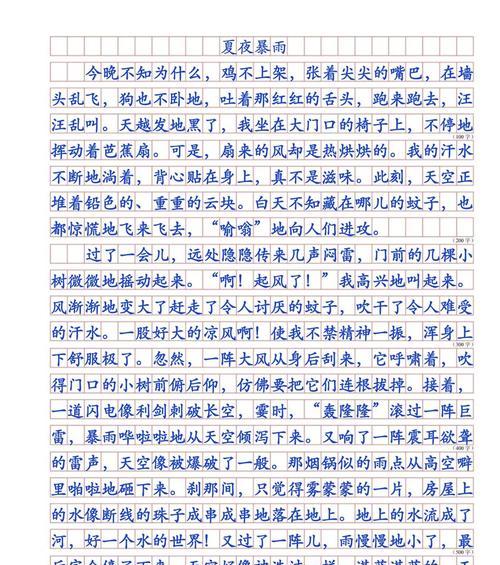 夏夜暴雨
今晚不知为什么，鸡不上架，张着尖尖的嘴巴，在墙
头乱飞，狗也不卧地，吐着那红红的舌头，跑来跑去，汪
汪乱叫。天越发地黑了，我坐在大门口的椅子上，不停地
(100字)
挥动着芭蕉扇。可是，扇来的风却是热烘烘的。我的汗水
不断地淌着，背心贴在身上，真不是滋味。此刻，天空正
堆着铅色的、重重的云块。白天不知藏在哪儿的蚊子，也
都惊慌地飞来飞去，“喻嗡”地向人们进攻。
(200字)
过了一会儿，远处隐隐传来几声闷雷，门前的几棵小
树微微地摇动起来。“啊！起风了！”我高兴地叫起来。
风渐渐地变大了赶走了令人讨厌的蚊子，吹干了令人难受
的汗水。一股好大的凉风啊！使我不禁精神一振，浑身上
(300字)
下舒服极了。忽然，一阵大风从身后刮来，它呼啸着，吹
得门口的小树前俯后仰，仿佛要把它们连根拔掉。接着，
一道闪电像利剑刺破长空，霎时，“轰隆隆”滚过一阵巨
雷，暴雨哗啦啦地从天空倾泻下来。又响了一阵震耳欲聋
(400字)
的雷声，天空像被爆破了一般。那烟锅似的雨点从高空噼
里啪啦地砸下来。刹那间，只觉得雾蒙蒙的一片，房屋上
的水像断线的珠子成串成串地落在地上。地上的水流成了
河，好一个水的世界！又过了一阵儿，雨慢慢地小了，最
(500字)